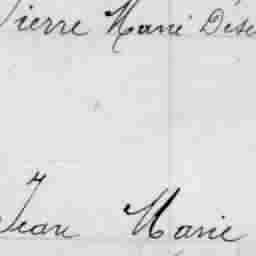 Pierre Marie Dése
Jean Marie